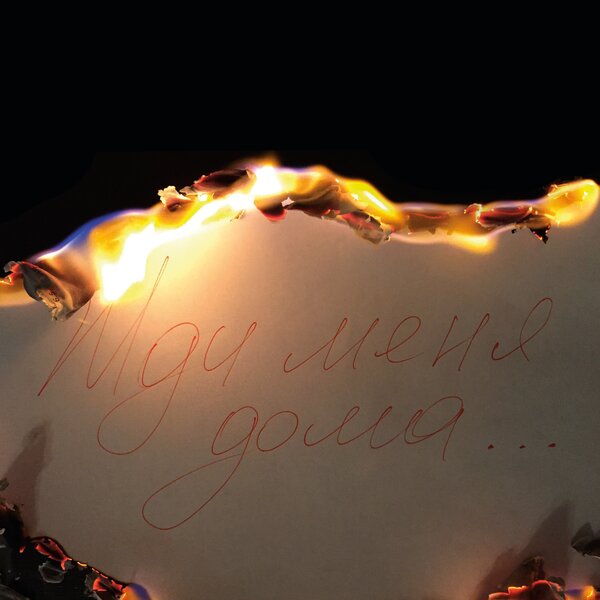 Жди меня
дома...